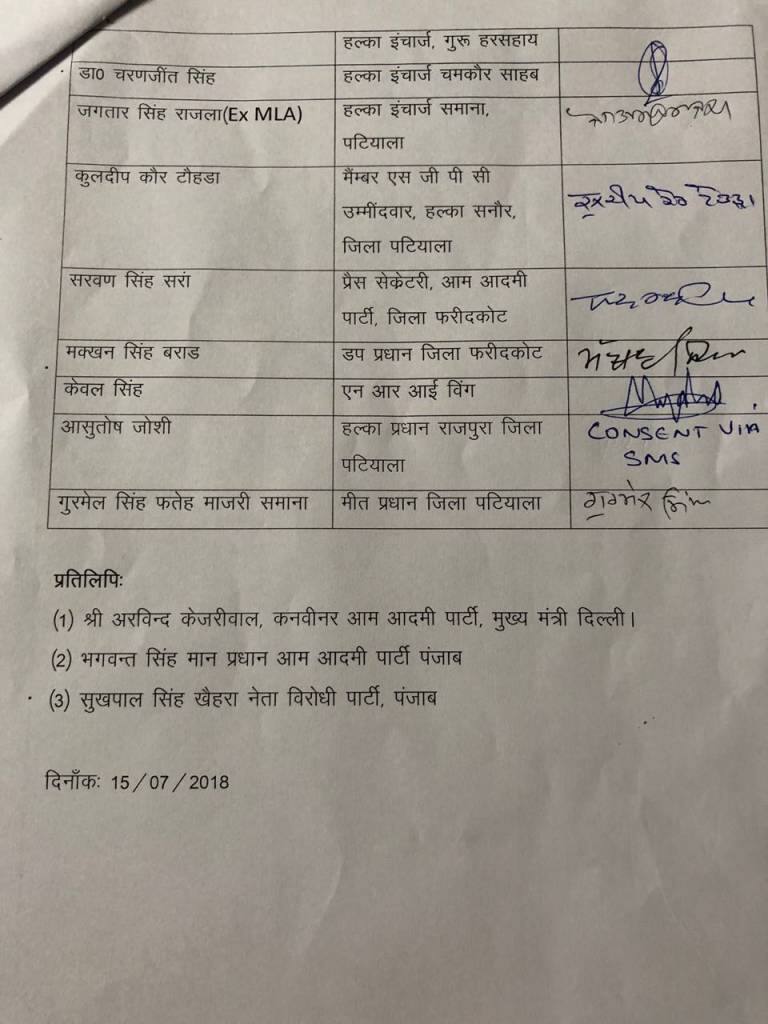 हल्का इंचार्ज, गुरू हरसहाय
डा0 चरणजींत सिंह हल्का इंचार्ज चमकौर साहब
जगतार सिंह राजला(Ex MLA) हल्का इंचार्ज समाना,
पटियाला
कुलदीप कौर टौहडा मैंम्बर एस जी पी सी
उम्मींदवार, हल्का सनौर,
जिला पटियाला
सरवण सिंह सरां प्रैस सेक्रेटरी, आम आदमी
पार्टी, जिला फरीदकोट
मक्खन सिंह बराड डप प्रधान जिला फरीदकोट
केवल सिंह एन आर आई विंग
आसुतोष जोशी हल्का प्रधान राजपुरा जिला CONSENT VIA
पटियाला SMS
गुरमेल सिंह फतेह माजरी समाना मीत प्रधान जिला पटियाला ਗੁਰਮੇਲ ਸਿੰਘ
प्रतिलिपिः
(1) श्री अरविन्द केजरीवाल, कनवीनर आम आदमी पार्टी, मुख्य मंत्री दिल्ली।
(2) भगवन्त सिंह मान प्रधान आम आदमी पार्टी पंजाब
(3) सुखपाल सिंह खैहरा नेता विरोधी पार्टी, पंजाब
दिनाँकः 15/07/2018